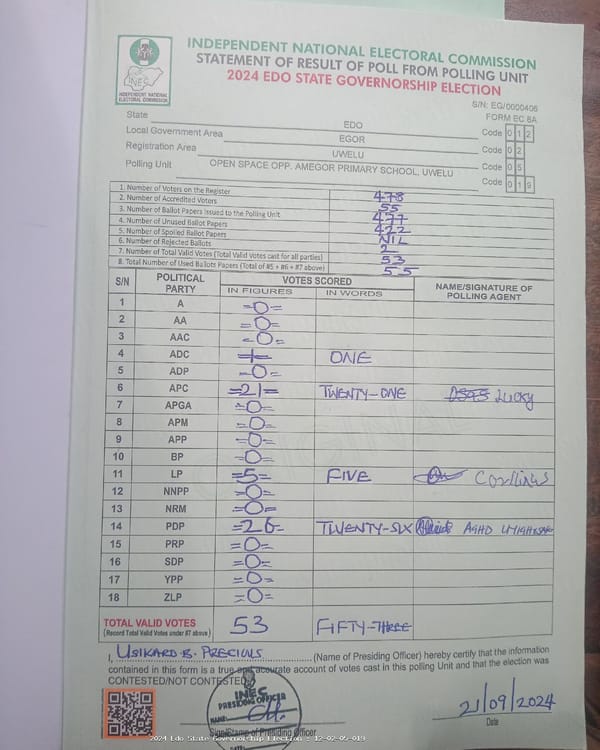 INDEPENDENT NATIONAL ELECTORAL COMMISSION
STATEMENT OF RESULT OF POLL FROM POLLING UNIT
2024 EDO STATE GOVERNORSHIP ELECTION
INEC
INDEPENDENT NATIONAL
ELECTORAL COMMISSION
S/N: EG/0000406
FORM EC 8A
State EDO Code 0 1 2
Local Government Area EGOR Code 0 2
Registration Area UWELU Code 0 5
Polling Unit OPEN SPACE OPP. AMEGOR PRIMARY SCHOOL, UWELU Code 0 1 9
1. Number of Voters on the Register 478
2. Number of Accredited Voters 55
3. Number of Ballot Papers Issued to the Polling Unit 477
4. Number of Unused Ballot Papers 422
5. Number of Spoiled Ballot Papers NIL
6. Number of Rejected Ballots 2
7. Number of Total Valid Votes (Total Valid Votes cast for all parties) 53
8. Total Number of Used Ballots Papers (Total of #5 + #6 + #7 above) 55
S/N POLITICAL PARTY VOTES SCORED NAME/SIGNATURE OF POLLING AGENT
IN FIGURES IN WORDS
1 A =0=
2 AA =0=
3 AAC =0=
4 ADC =1= ONE
5 ADP =0=
6 APC =21= TWENTY-ONE Lucky
7 APGA =0=
8 APM =0=
9 APP =0=
10 BP =0=
11 LP =5= FIVE
12 NNPP =0=
13 NRM =0=
14 PDP =26= TWENTY-SIX
15 PRP =0=
16 SDP =0=
17 YPP =0=
18 ZLP =0=
TOTAL VALID VOTES 53 FIFTY-THREE
(Record Total Valid Votes under #7 above)
I, USIKARO B. PRECIOUS (Name of Presiding Officer) hereby certify that the information
contained in this form is a true and accurate account of votes cast in this polling Unit and that the election was
CONTESTED/NOT CONTESTED.
INEC
PRESIDING OFFICER
NAME:
DATE
Sign/Stamp of Presiding Officer
21/09/2024
Date
2024 Edo State Governorship Election - 12-02-05-019